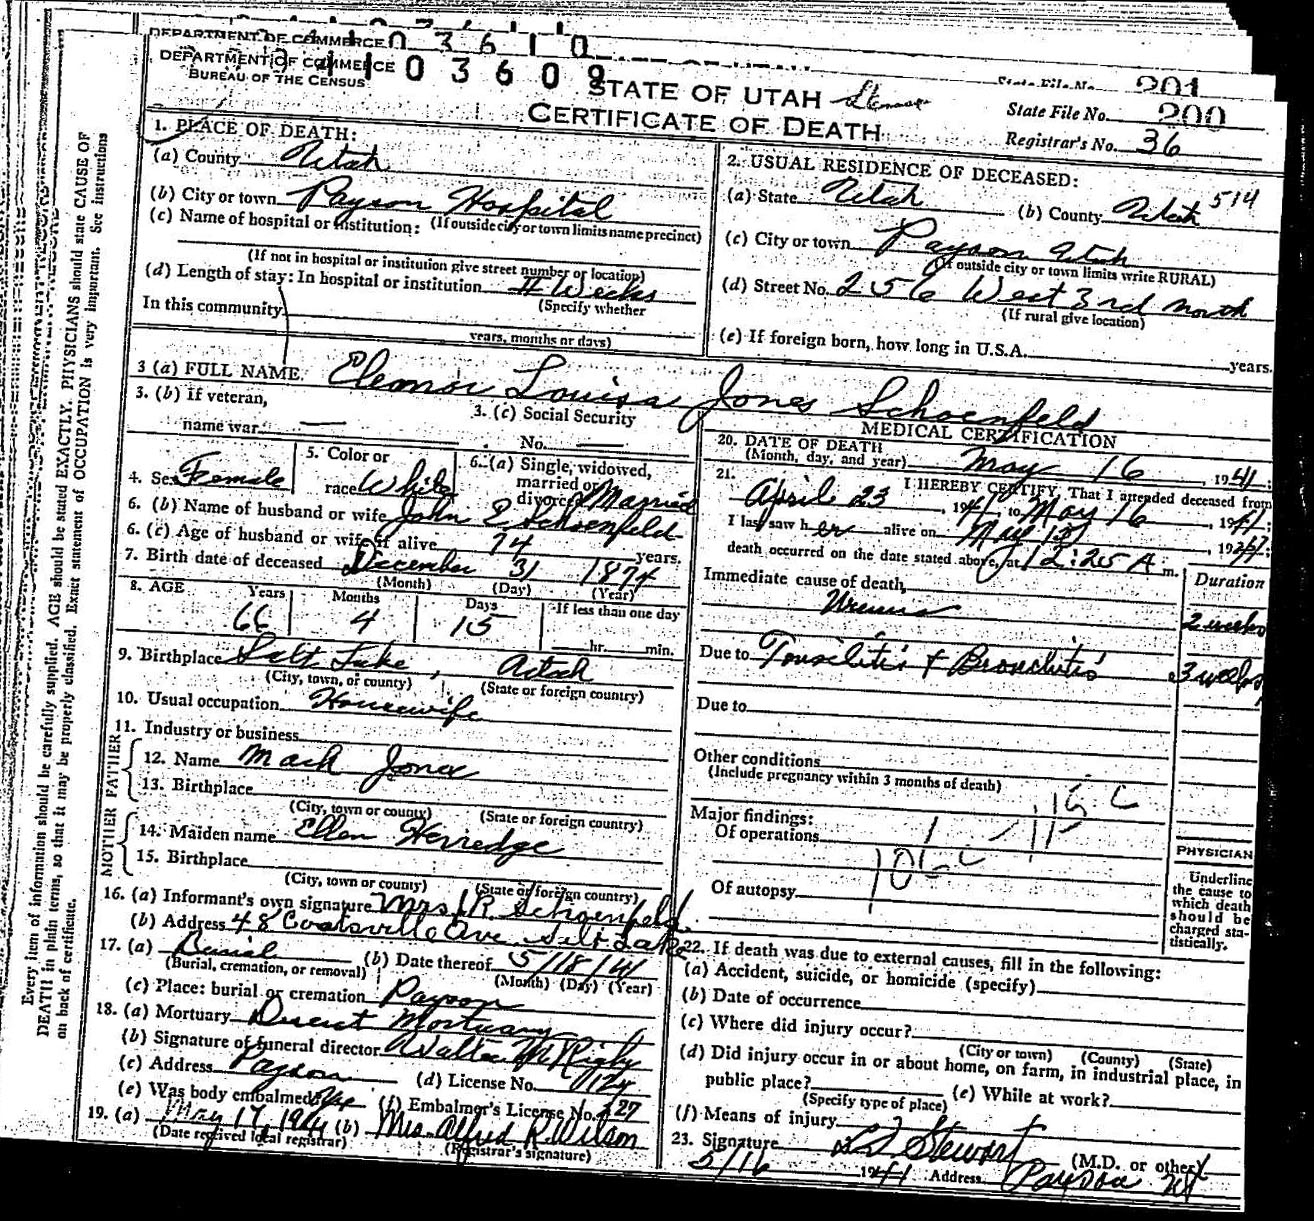 DEPARTMENT OF COMMERCE 03610
DEPARTMENT OF COMMERCE 03609
BUREAU OF THE CENSUS
STATE OF UTAH
CERTIFICATE OF DEATH
State File No. 201
State File No. 200
Registrar's No. 36
1. PLACE OF DEATH:
(a) County Utah
(b) City or town Payson Hospital
(c) Name of hospital or institution: (If outside city or town limits name precinct)
(If not in hospital or institution give street number or location)
(d) Length of stay: In hospital or institution Weeks
(Specify whether
In this community
years, months or days)
2. USUAL RESIDENCE OF DECEASED:
(a) State Utah (b) County Utah 514
(c) City or town Payson Utah
(If outside city or town limits write RURAL)
(d) Street No. 256 West 3rd North
(If rural give location)
(e) If foreign born, how long in U.S.A. years.
3 (a) FULL NAME Eleonor Louisa Jones Schoenfeld
3. (b) If veteran,
name war —
3. (c) Social Security
No. —
4. Sex Female
5. Color or
race White
6. (a) Single, widowed,
married or
divorced Married
6. (b) Name of husband or wife John E Schoenfeld
6. (c) Age of husband or wife if alive 74 years.
7. Birth date of deceased December 31 1874
(Month) (Day) (Year)
8. AGE Years Months Days If less than one day
66 4 15 hr. min.
9. Birthplace Salt Lake, Utah
(City, town, or county) (State or foreign country)
10. Usual occupation Housewife
11. Industry or business
FATHER
12. Name Mack Jones
13. Birthplace
(City, town or county) (State or foreign country)
MOTHER
14. Maiden name Ellen Herredge
15. Birthplace
(City, town or county) (State or foreign country)
16. (a) Informant's own signature Mrs J R Schoenfeld
(b) Address 48 Coatsville Ave Salt Lake
17. (a) Burial (b) Date thereof 5/18/41
(Burial, cremation, or removal) (Month) (Day) (Year)
(c) Place: burial or cremation Payson
18. (a) Mortuary Mortuary
(b) Signature of funeral director Walter M Rigby
(c) Address Payson (d) License No. 124
(e) Was body embalmed? Yes (f) Embalmer's License No. 127
19. (a) May 17, 1941 (b) Mrs. Alfred R. Wilson
(Date received local registrar) (Registrar's signature)
MEDICAL CERTIFICATION
20. DATE OF DEATH
(Month, day, and year) May 16, 1941
21. I HEREBY CERTIFY, That I attended deceased from
April 23, 1941, to May 16, 1941;
I last saw her alive on May 15, 1941;
death occurred on the date stated above, at 12:25 A m.
Immediate cause of death, Duration
Uremia 2 weeks
Due to Tonselitis & Bronchitis 3 weeks
Due to
Other conditions
(Include pregnancy within 3 months of death)
Major findings:
Of operations
Of autopsy
PHYSICIAN
Underline
the cause to
which death
should be
charged sta-
tistically.
22. If death was due to external causes, fill in the following:
(a) Accident, suicide, or homicide (specify)
(b) Date of occurrence
(c) Where did injury occur?
(City or town) (County) (State)
(d) Did injury occur in or about home, on farm, in industrial place, in
public place? (e) While at work?
(Specify type of place)
(f) Means of injury
23. Signature L D Stewart (M.D. or other)
5/16 1941 Address Payson Ut
Every item of information should be carefully supplied. AGE should be stated EXACTLY. PHYSICIANS should state CAUSE OF
DEATH in plain terms, so that it may be properly classified. Exact statement of OCCUPATION is very important. See instructions
on back of certificate.